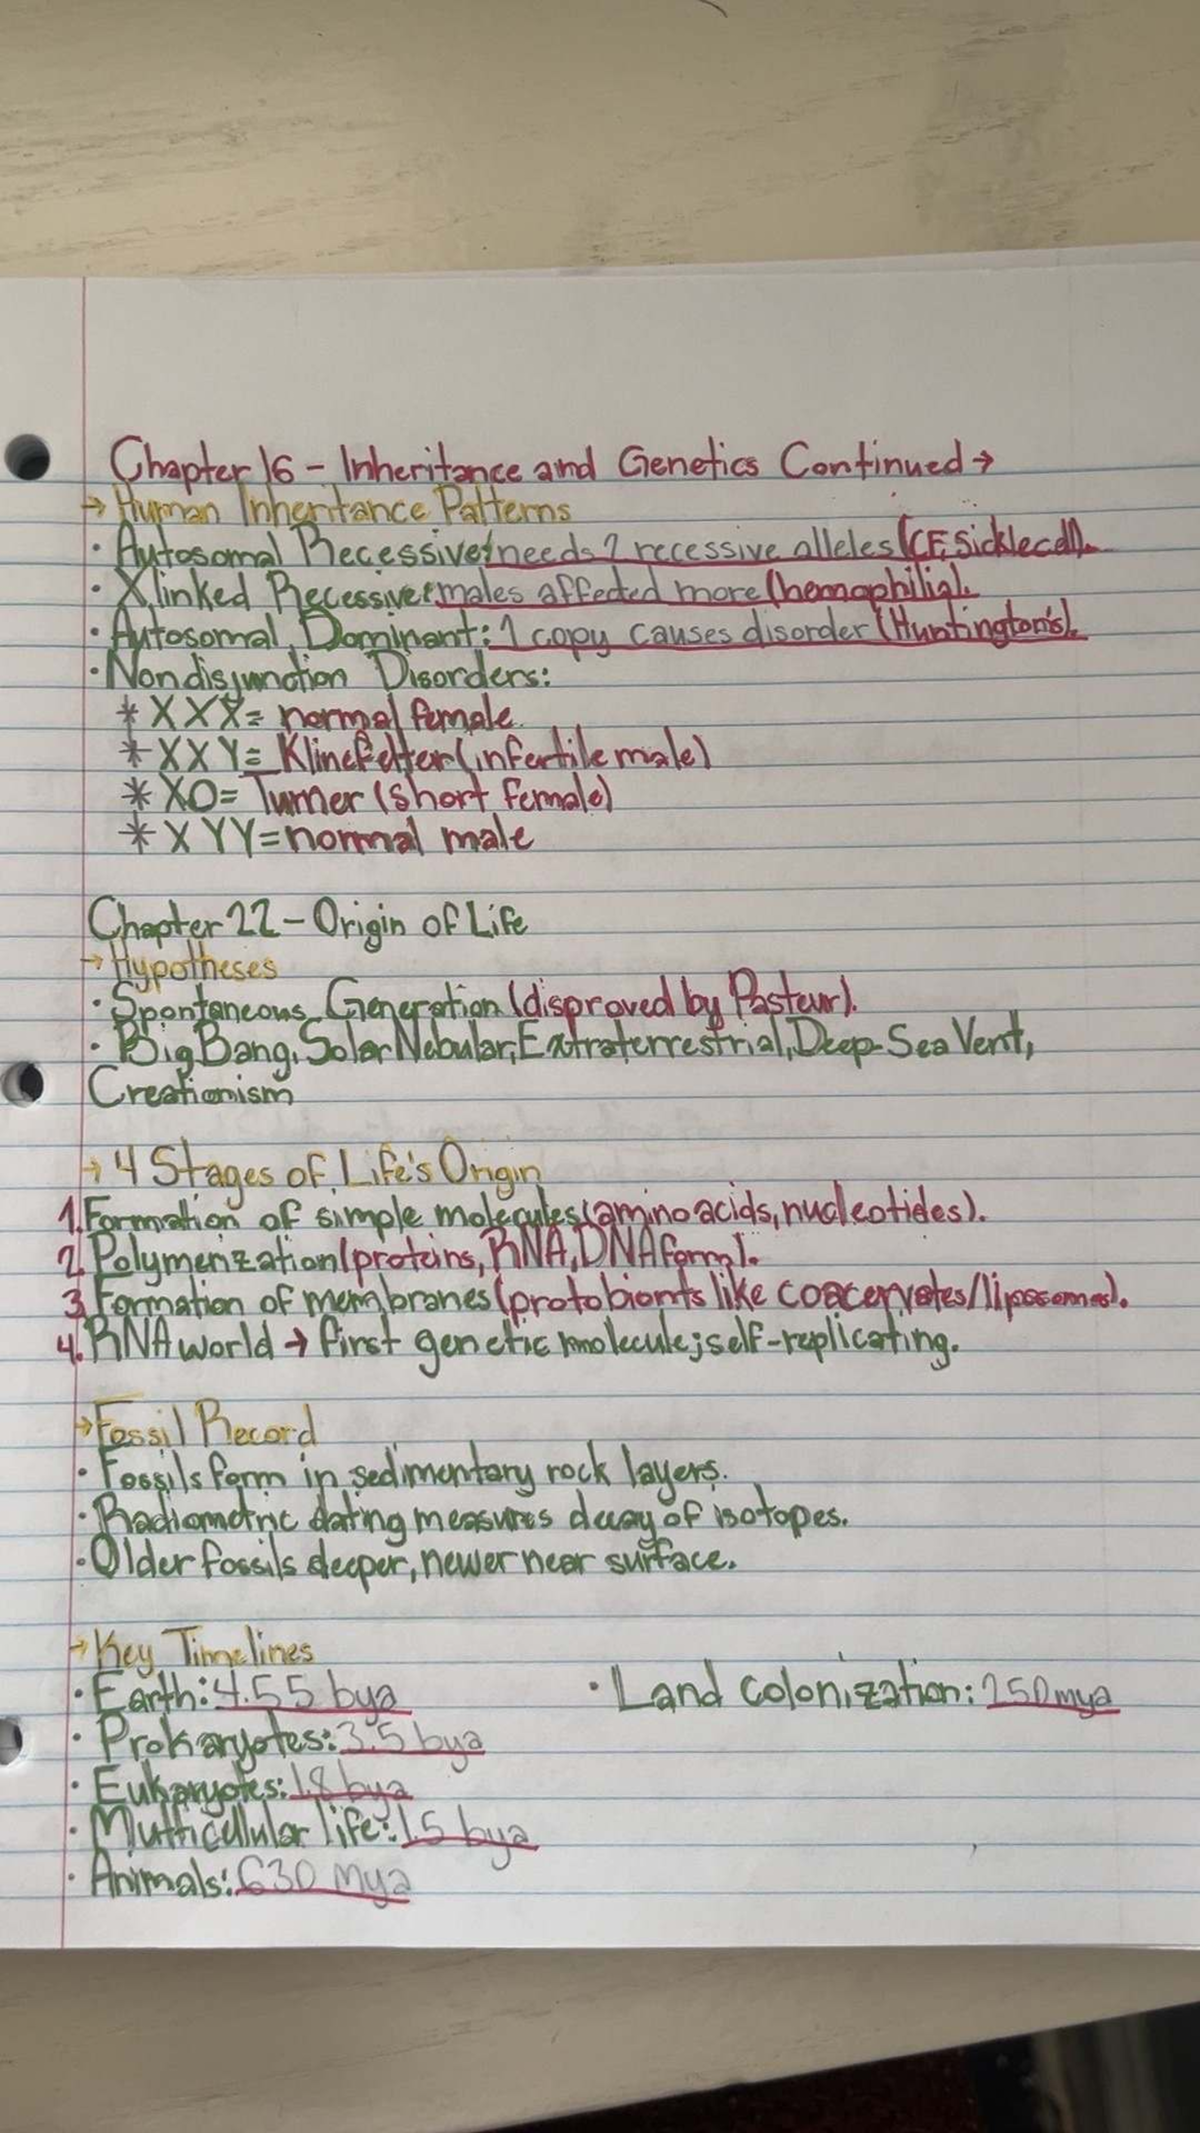 Chapter 16 - Inheritance and Genetics Continued →
→ Human Inheritance Patterns
• Autosomal Recessive: needs 2 recessive alleles (CF, Sicklecell).
• X linked Recessive: males affected more (hemophilia).
• Autosomal Dominant: 1 copy causes disorder (Huntington's).
• Nondisjunction Disorders:
* XXX = normal female
* XXY = Klinefelter (infertile male)
* XO = Turner (short female)
* XYY = normal male
Chapter 22 - Origin of Life
→ Hypotheses
• Spontaneous Generation (disproved by Pasteur).
• Big Bang, Solar Nebular, Extraterrestrial, Deep-Sea Vent,
Creationism
→ 4 Stages of Life's Origin
1. Formation of simple molecules (amino acids, nucleotides).
2. Polymerization (proteins, RNA, DNA form).
3. Formation of membranes (protobionts like coacervates/liposomes).
4. RNA world → first genetic molecule; self-replicating.
→ Fossil Record
• Fossils form in sedimentary rock layers.
• Radiometric dating measures decay of isotopes.
• Older fossils deeper, newer near surface.
→ Key Timelines
• Earth: 4.55 bya
• Prokaryotes: 3.5 bya
• Eukaryotes: 1.8 bya
• Multicellular life: 1.5 bya
• Animals: 630 mya
• Land colonization: 250 mya